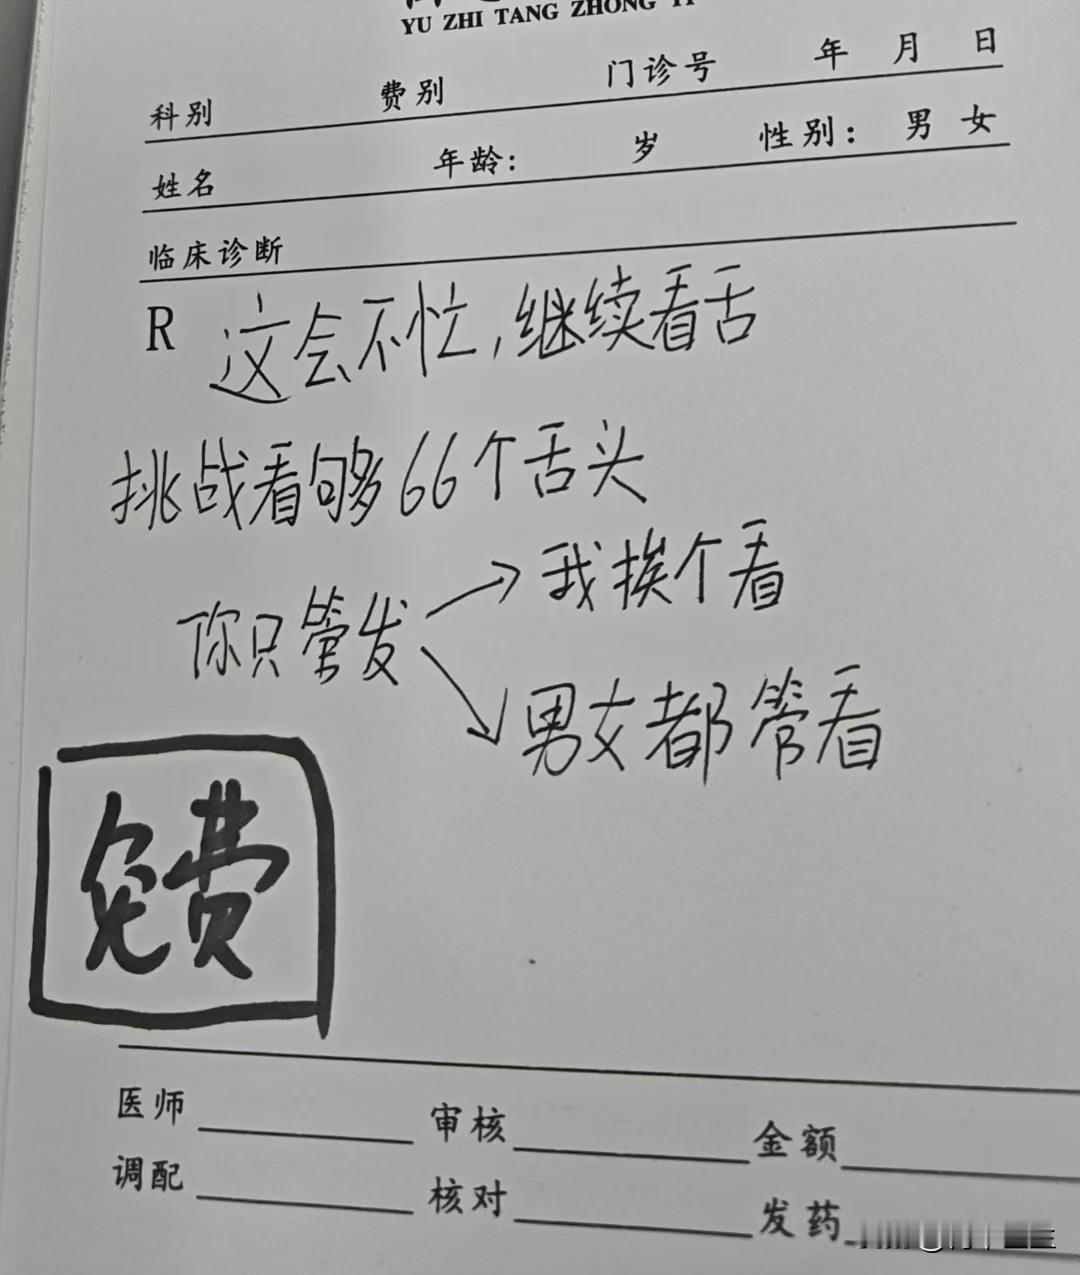 YU ZHI TANG ZHONG YI
科别 费别 门诊号 年 月 日
姓名 年龄: 岁 性别: 男 女
临床诊断
R 这会不忙,继续看舌
挑战看够66个舌头
你只管发 → 我挨个看
↘ 男女都管看
免费
医师 审核 金额
调配 核对 发药